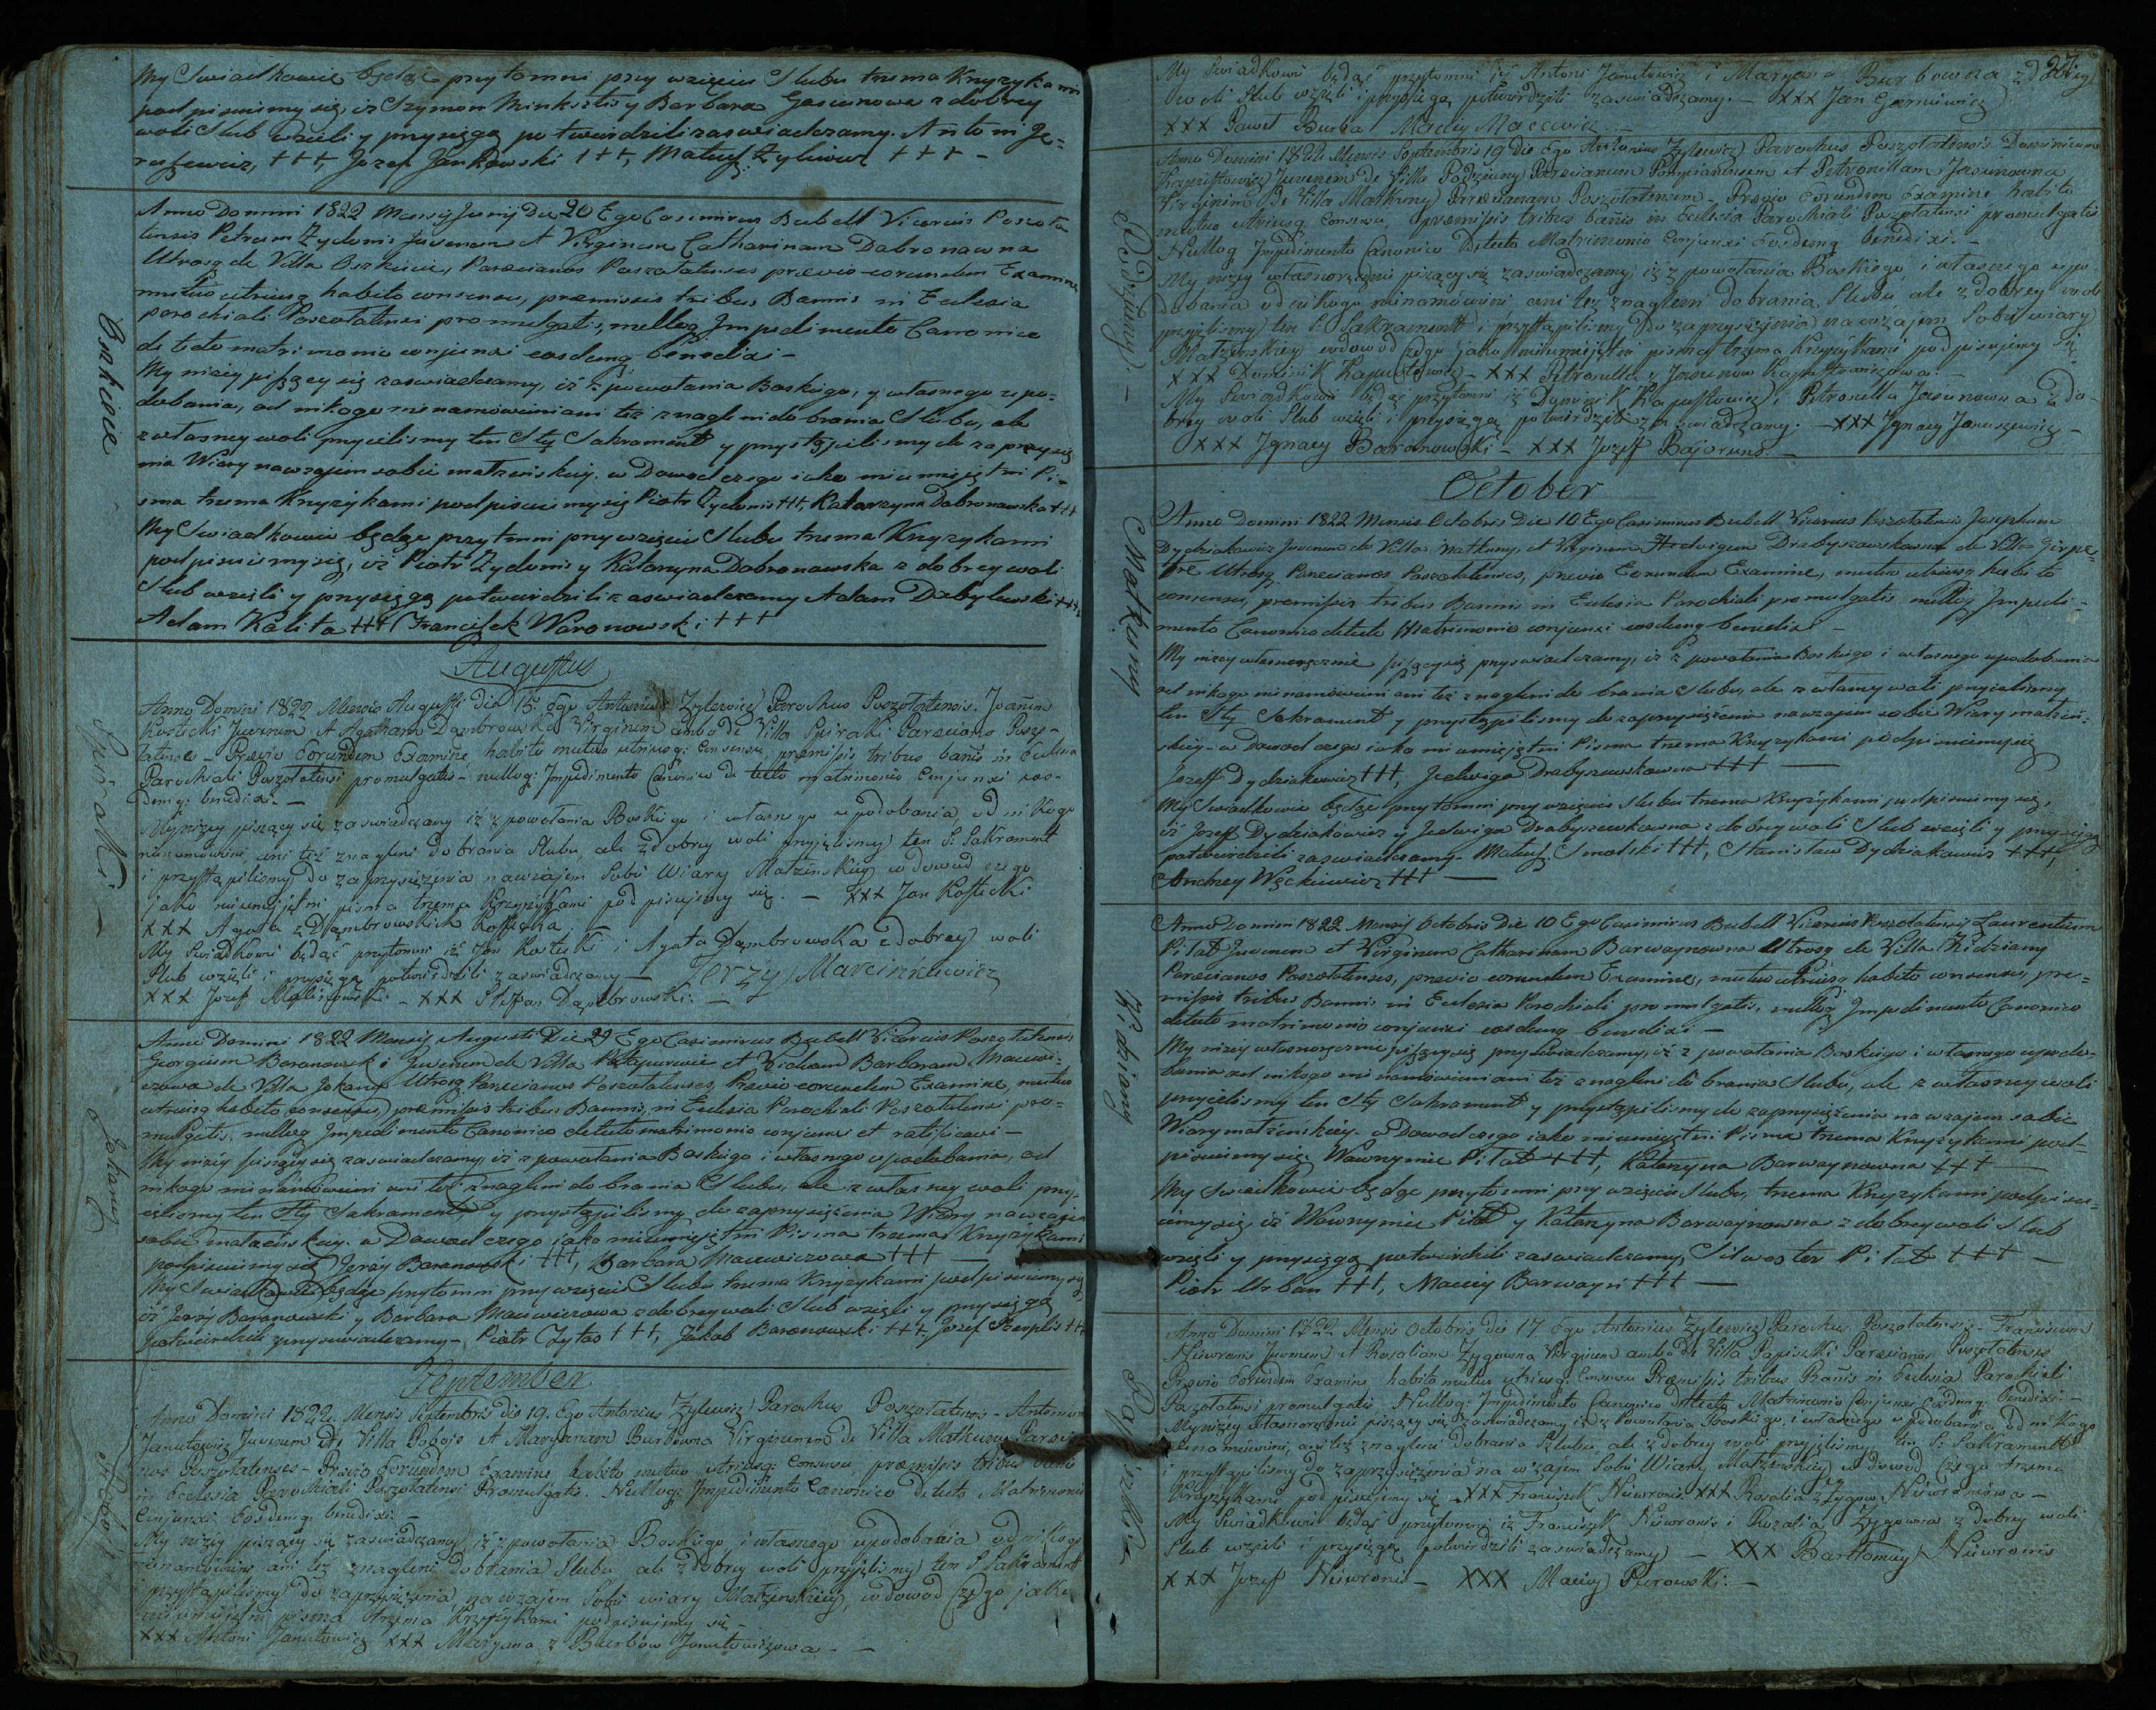 My Swiadkowie będąc przytomni przy wzięciu Slubu trzema Krzyzykami
podpisuiemy się, iz Szymon Minksztis y Barbara Gasiunowa z dobrey
woli Slub wzieli y przysięgą potwierdzili zaswiadczamy. Antoni
+++, Jozef Jankowski +++, Mateusz Zyliewicz +++ -
Oszkiecie
Anno Domini 1822 Mensis Junij Die 20 Ego Casimirus Bubell Vicarius Poszoła
tensis Petrum Zydonis Juvenem et Virginem Catharinam Dabronawna
Utrosq de Villa Oszkiecie, Paraecianos Poszołatenses praevio eorundem Examine
mutuo utriusq habito consensu, praemissis tribus Bannis in Eclesia
parochiali Poszołatensi promulgatis, nulloq Impedimento Canonico
detecto matrimonio conjunxi eosdemq benedixi -
My nizey piszący się zaswiadczamy, iż z powołania Boskiego, y własnego upo-
dobania, od nikogo nienamowieni ani też znagleni do brania Slubu, ale
z własney woli przyieliśmy ten Sty Sakrament y przystąpiliśmy do zaprzysięże
nia Wiary nawzajem sobie małżeńskiey. w Dowod czego iako nieumieiętni Pi-
sma trzema Krzyzykami podpisuiemy się Piotr Zydonis +++, Katarzyna Dabronawska +++
My Swiadkowie będąc przytomni przy wzięciu Slubu trzema Krzyzykami
podpisuiemy się, iż Piotr Zydonis y Katarzyna Dabronawska z dobrey woli
Slub wzięli y przysięgą potwierdzili zaswiadczamy Adam Dabylewski +++,
Adam Kalita +++ Franciszek Woronowski +++
Augustus
Spiraki -
Anno Domini 1822 Mensis Augusti die 15 Ego Antonius Zylewicz Parochus Poszołatensis. Joannem
Kostecki Juvenem et Agatham Dąmbrowska Virginem ambo de Villa Spiraki Paraecianos Poszo-
łatenses - Praevio Eorundem Examine, habito mutuo utriusq: Consensu, praemissis tribus bannis in Eclesia
Parochiali Poszołatensi promulgatis - nulloq: Impedimento Canonico detecto matrimonio Conjunxi eos-
demq: benedixi. -
My nizey piszący się zaswiadczamy iż z powołania Boskiego i własnego upodobania, od nikogo
nienamowieni ani też znagleni do brania Slubu, ale z dobrey woli przyjeliśmy ten S: Sakrament
i przystąpiliśmy do zaprzysiężenia nawzajem Sobie Wiary Małżenskiey w dowod czego
jako nieumiejętni pisma trzema Krzyzykami podpisujemy się. - XXX Jan Kostecki
XXX Agata z Dąmbrowskich Kostecka
My Swiadkowie będąc przytomni iż Jan Kostecki i Agata Dąmbrowska z dobrey woli
Slub wzieli i przysięgą potwierdzili zaswiadczamy - Jerzy Marcinkiewicz
XXX Jozef - XXX Stefan Dąmbrowski. -
Jokany
Anno Domini 1822 Mensis Augusti Die 29 Ego Casimirus Bubell Vicarius Poszołatensis
Georgium Baranowski Juvenem de Villa et Viduam Barbaram Macewi-
czowa de Villa Jokany Utrosq Paraecianos Poszołatenses, Praevio eorundem Examine, mutuo
utriusq habito consensu, praemissis tribus Bannis, in Eclesia Parochiali Poszołatensi pro-
mulgatis, nulloq Impedimento Canonico detecto matrimonio conjunxi et ratificavi -
My nizey piszący się zaswiadczamy, iż z powołania Boskiego i własnego upodobania, od
nikogo nienamowieni ani też znagleni do brania Slubu, ale z własney woli przy-
ieliśmy ten Sty Sakrament, y przystąpiliśmy do zaprzysiężenia Wiary nawzajem
sobie małżeńskiey. w Dowod czego iako nieumieiętni Pisma trzema Krzyzykami
podpisuiemy się Jerzy Baranowski +++, Barbara Macewiczowa +++ -
My Swiadkowie będąc przytomni przy wzięciu Slubu trzema Krzyzykami podpisuiemy się,
iż Jerzy Baranowski y Barbara Macewiczowa z dobrey woli Slub wzięli y przysięgą
potwierdzili przyswiadczamy - Piotr Czytas +++, Jakob Baranowski +++ Jozef +++
September
Anno Domini 1822. Mensis Septembris die 19. Ego Antonius Zylewicz Parochus Poszołatensis - Antonium
Janutowicz Juvenem de Villa Poboie et Maryanam Burbowna Virginem de Villa Matkuny Paraecia-
nos Poszołatenses - Praevio Eorundem Examine habito mutuo utriusq: Consensu, praemissis tribus bannis
in Ecclesia Parochiali Poszołatensi Promulgatis. Nulloq: Impedimento Canonico Detecto Matrimonio
Conjunxi Eosdemq: benedixi. -
My nizey piszący się zaswiadczamy iż z powołania Boskiego i własnego upodobania od nikogo
nienamowieni ani też znagleni do brania Slubu ale z dobrey woli przyjeliśmy ten S. Sakrament
i przystąpiliśmy do zaprzysiężenia na wzajem Sobie wiary Małżenskiey, w dowod czego jako
nieumiejętni pisma trzema Krzyzykami podpisujemy się -
XXX Antoni Janutowicz XXX Maryana z Burbow Janutowiczowa - -
27.
My Swiadkowie będąc przytomni iż Antoni Janutowicz i Maryana Burbowna z dobrey
woli Slub wzięli i przysięgą potwierdzili zaswiadczamy. - XXX Jan Garniewicz
XXX Paweł Burba Maciey Macewicz -
Podziuny. -
Anno Domini 1822 Mensis Septembris 19 die Ego Antonius Zylewicz Parochus Poszołatensis Dominicum
Kapustowicz Juvenem de Villa Podziuny Paraecianum et Petronillam Jasunowna
Virginem De Villa Matkuny Paraecianam Poszołatensem - Praevio Eorundem Examine habito
mutuo utriusq Consensu, praemissis tribus bannis in Eclesia Parochiali Poszołatensi promulgatis
Nulloq Impedimento Canonico Detecto Matrimonio Conjunxi Eosdemq benedixi. -
My nizey własnoręcznie piszący się zaswiadczamy iż z powołania Boskiego i własnego upo-
dobania od nikogo nienamowieni ani też znagleni do brania Slubu ale z dobrey woli
przyjeliśmy ten S. Sakrament i przystąpiliśmy do zaprzysiężenia nawzajem Sobie wiary
Małżenskiey w dowod czego jako nieumiejętni pisma trzema Krzyzykami podpisujemy się.
XXX Dominik Kapustowicz - XXX Petronella z Jasunow Kapustowiczowa. -
My Swiadkowie będąc przytomni iż Dominik Kapustowicz i Petronella Jasunowna z do-
brey woli Slub wzięli i przysięgą potwierdzili zaswiadczamy. - XXX Ignacy Januszewicz -
XXX Ignacy Baranowski - XXX Jozeff Bajoruns -
October
Matkuny
Anno Domini 1822 Mensis Octobris Die 10 Ego Casimirus Bubell Vicarius Poszołatensis Josephum
Dydziakowicz Juvenem de Villa Matkuny, et Virginem Hedvigem Drabyszewskowna de Villa
Utrosq Paraecianos Poszołatenses, previo Eorundem Examine, mutuo utriusq habito
consensu, premissis tribus Bannis in Eclesia Parochiali promulgatis nulloq Impedi-
mento Canonico detecto Matrimonio conjunxi eosdemq benedixi -
My nizey własnoręcznie piszący się przyswiadczamy, iż z powołania Boskiego i własnego upodobania
od nikogo nienamowieni ani też znagleni do brania Slubu, ale z własney woli przyieliśmy
ten Sty Sakrament y przystąpiliśmy do zaprzysiężenia nawzajem sobie Wiary małżeń-
skiey - w Dowod czego iako nieumieiętni Pisma trzema Krzyzykami podpisuiemy się
Jozeff Dydziakowicz +++, Jadwiga Drabyszewskowna +++ -
My Swiadkowie będąc przytomni przy wzięciu Slubu trzema Krzyzykami podpisuiemy się,
iż Jozeff Dydziakowicz y Jadwiga Drabyszewskowna z dobrey woli Slub wzięli y przysięgą
potwierdzili zaswiadczamy - Mateusz Smolski +++, Stanisław Dydziakowicz +++,
Andrzey Węckiewicz +++ -
Kidziany
Anno Domini 1822 Mensis Octobris Die 10 Ego Casimirus Bubell Vicarius Poszołatensis Laurentium
Piłat Juvenem et Virginem Catharinam Barwaynowna Utrosq de Villa Kidziany
Paraecianos Poszołatenses, previo eorundem Examine, mutuo utriusq habito consensu, pre-
missis tribus Bannis in Eclesia Parochiali promulgatis, nulloq Impedimento Canonico
detecto matrimonio conjunxi eosdemq benedixi -
My nizey własnoręcznie piszący się przyswiadczamy, iż z powołania Boskiego i własnego upodo-
bania od nikogo nienamowieni ani też znagleni do brania Slubu, ale z własney woli
przyieliśmy ten Sty Sakrament y przystąpiliśmy do zaprzysiężenia nawzajem sobie
Wiary małżeńskiey - w Dowod czego iako nieumieiętni Pisma trzema Krzyzykami pod-
pisuiemy się. Wawrzyniec Piłat +++, Katarzyna Barwaynowna +++ -
My Swiadkowie będąc przytomni przy wzięciu Slubu, trzema Krzyzykami podpisu-
iemy się, iż Wawrzyniec Piłat y Katarzyna Barwaynowna z dobrey woli Slub
wzięli y przysięgą potwierdzili zaswiadczamy, Silwester Piłat +++ -
Piotr Urban +++, Maciey Barwayn +++ -
Papiszki
Anno Domini 1822 Mensis Octobris die 17 Ego Antonius Zylewicz Parochus Poszołatensis - Franciscum
Niewronis Juvenem et Rosaliam Zygowna Virginem ambo de Villa Papiszki Paraecianos Poszołatenses
Praevio Eorundem Examine habito mutuo utriusq: Consensu Praemissis tribus Bannis in Eclesia Parochiali
Poszołatensi promulgatis. Nulloq: Impedimento Canonico detecto Matrimonio Conjunxi Eosdemq: benedixi -
My nizey Własnoręcznie piszący się zaswiadczamy iż z Powołania Boskiego, i własnego upodobania od nikogo
nienamowieni, ani też znagleni do brania Szlubu, ale z dobrey woli przyjeliśmy ten S: Sakrament
i przystąpiliśmy do zaprzysiężenia na wzajem Sobie Wiary Małżenskiey w dowod czego trzema
Krzyzykami podpisujemy się. XXX Franciszek Niewronis XXX Rosalia z Zygow Niewronowa -
My Swiadkowie będąc przytomni iż Franciszek Niewronis i Rozalia Zygowna z dobrey woli
Slub wzieli i przysięgą potwierdzili zaswiadczamy - XXX Bartłomiey Niewronis
XXX Jozef Niewronis - XXX Maciey Pierowski. -